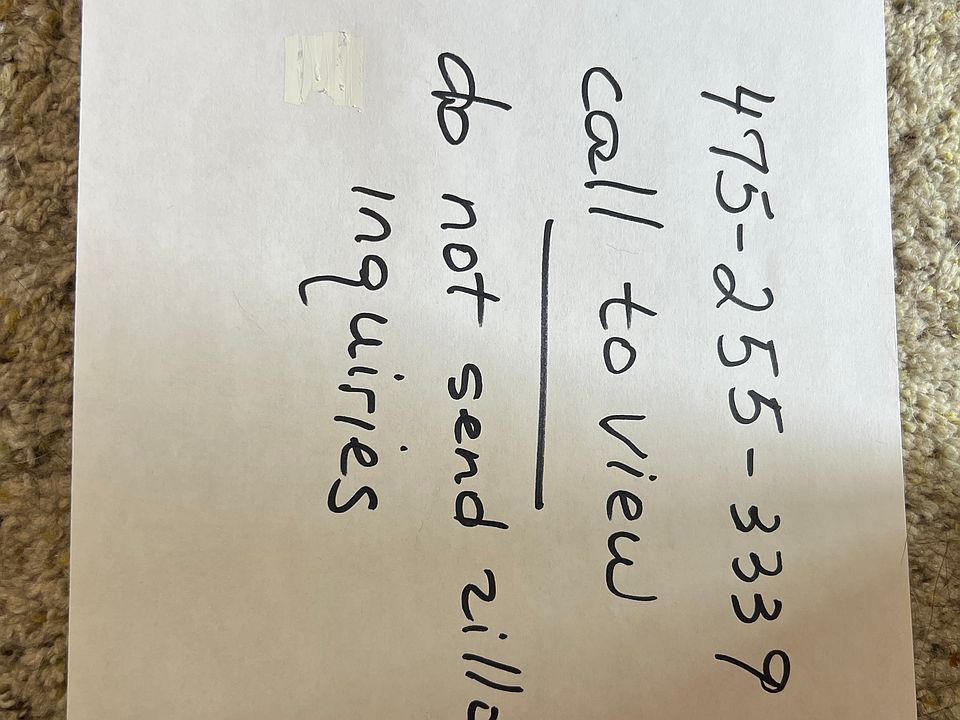 475-255-3339
call to view
do not send zillo
inquiries